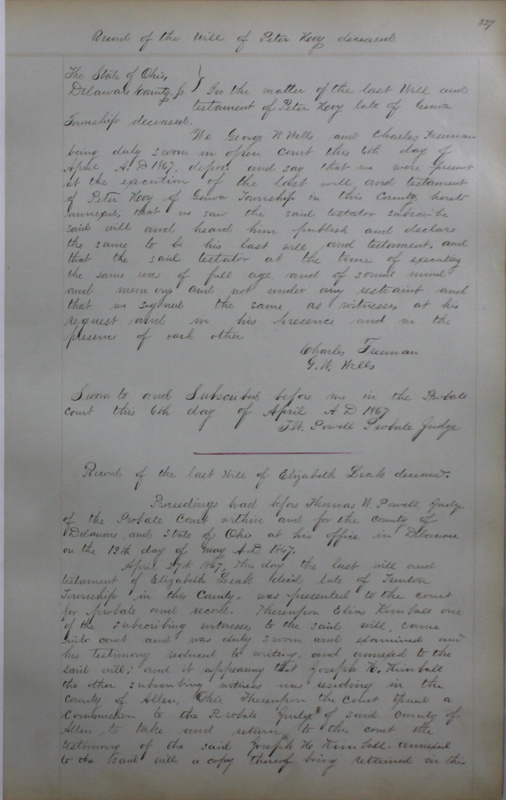 327
Record of the Will of Peter Hoey deceased
The State of Ohio,
Delaware County Ss. } In the matter of the last Will and
testament of Peter Hoey late of Genoa
Township deceased.
We George W Wells and Charles Freeman
being duly sworn in open court this 6th day of
April A.D 1867, depose and say that we were present
at the execution of the last will and testament
of Peter Hoey of Genoa Township in this County, hereto
annexed, that we saw the said testator subscribe
said will and heard him publish and declare
the same to be his last will and testament, and
that the said testator at the time of executing
the same was of full age and of sound mind
and memory and not under any restraint and
that we signed the same as witnesses at his
request and in his presence and in the
presence of each other
Charles Freeman
G. W. Wells
Sworn to and Subscribed before me in the Probate
court this 6th day of April A D 1867
T. W. Powell Probate Judge
Record of the last Will of Elizabeth Leak deceased.
Proceedings had before Thomas W. Powell Judge
of the Probate Court within and for the county of
Delaware and State of Ohio at his office in Delaware
on the 19th day of May A.D. 1867.
April 29th 1867, This day the last will and
testament of Elizabeth Leak decd late of Trenton
Township in this County, was presented to the court
for probate and record. Thereupon Elias Kimball one
of the subscribing witnesses to the said will, came
into court and was duly sworn and examined and
his testimony reduced to writing, and annexed to the
said will; and it appearing that Joseph H. Kimball
the other subscribing witness was residing in the
County of Allen, Ohio Thereupon the Court issued a
Commission to the Probate Judge of said County of
Allen to take and return to this court the
testimony of the said Joseph H. Kimball. annexed
to the said will a copy thereof being retained in this